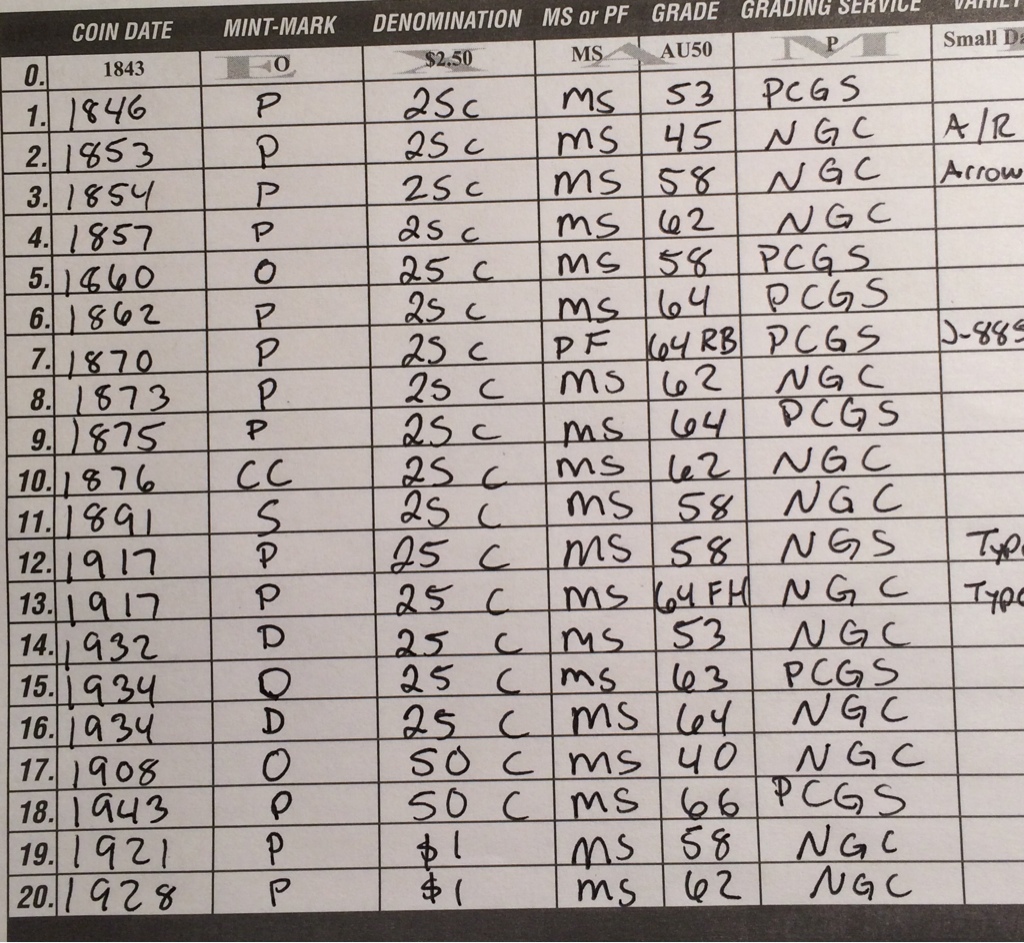 COIN DATE MINT-MARK DENOMINATION MS or PF GRADE GRADING SERVICE
0. 1843 O $2.50 MS AU50 P Small
1. 1846 P 25c MS 53 PCGS
2. 1853 P 25c MS 45 NGC A/R
3. 1854 P 25c MS 58 NGC Arrow
4. 1857 P 25c MS 62 NGC
5. 1860 O 25c MS 58 PCGS
6. 1862 P 25c MS 64 PCGS
7. 1870 P 25c PF 64RB PCGS J-885
8. 1873 P 25c MS 62 NGC
9. 1875 P 25c MS 64 PCGS
10. 1876 CC 25c MS 62 NGC
11. 1891 S 25c MS 58 NGC
12. 1917 P 25c MS 58 NGS Type
13. 1917 P 25c MS 64FH NGC Type
14. 1932 D 25c MS 53 NGC
15. 1934 D 25c MS 63 PCGS
16. 1934 D 25c MS 64 NGC
17. 1908 O 50c MS 40 NGC
18. 1943 P 50c MS 66 PCGS
19. 1921 P $1 MS 58 NGC
20. 1928 P $1 MS 62 NGC